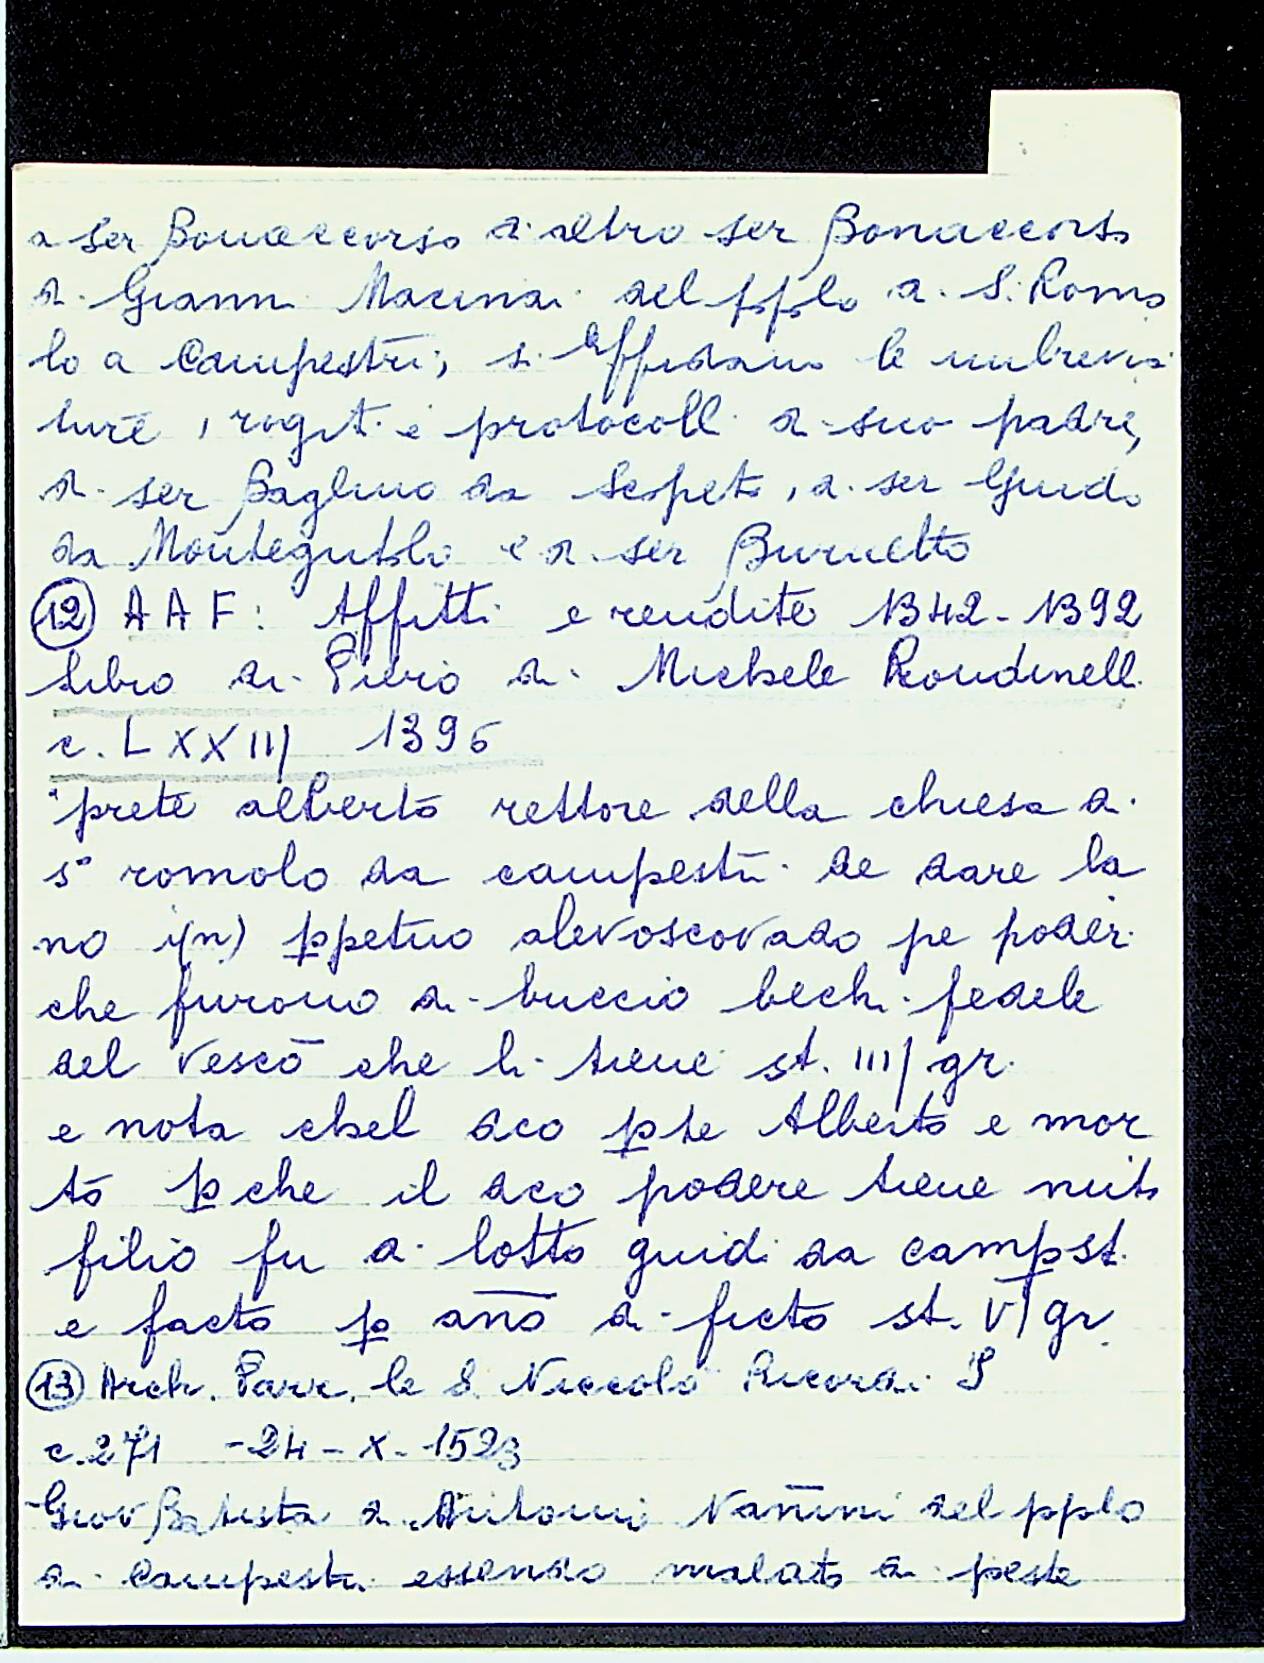 a ser Bonaccorso di altro ser Bonaccorso
di Gianni Macinai del pplo di S. Romo
lo a Campestri; si affidano le imbrevia
ture, rogiti e protocolli di suo padre,
di ser Baglino da Scopeto, di ser Guido
da Montegutoli e di ser Burnetto
(12) AAF: Affitti e rendite 1342-1392
libro di Piero di Michele Rondinelli
c. LXXIII 1396
"prete alberto rettore della chiesa di
s° romolo da campestri de dare la
no i(n) ppetuo alevoscovado pe poderi
che furono di buccio bechi fedele
del vescō che li tiene st. IIII gr.
e nota chel dco pte Alberto e mor
to pche il dco podere tiene nuto
filio fu di lotto guidi da campst.
e facto p año di ficto st. VI gr.
(13) Arch. Parr. le S. Niccolò Ricordi I
c. 271 - 24 - X - 1523
Giov Batista di Antonio Vañini del pplo
di Campestri essendo malato di peste